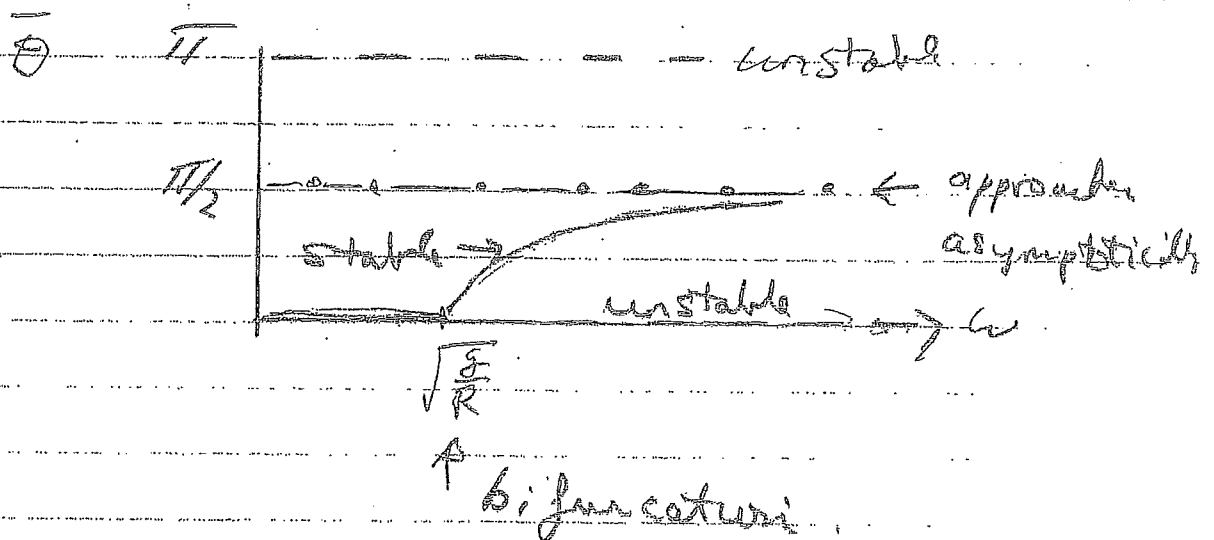 θ̄ π unstable
π/2 ← approaches
stable → asymptotically
unstable → ω
√(g/R)
↑ bifurcation.